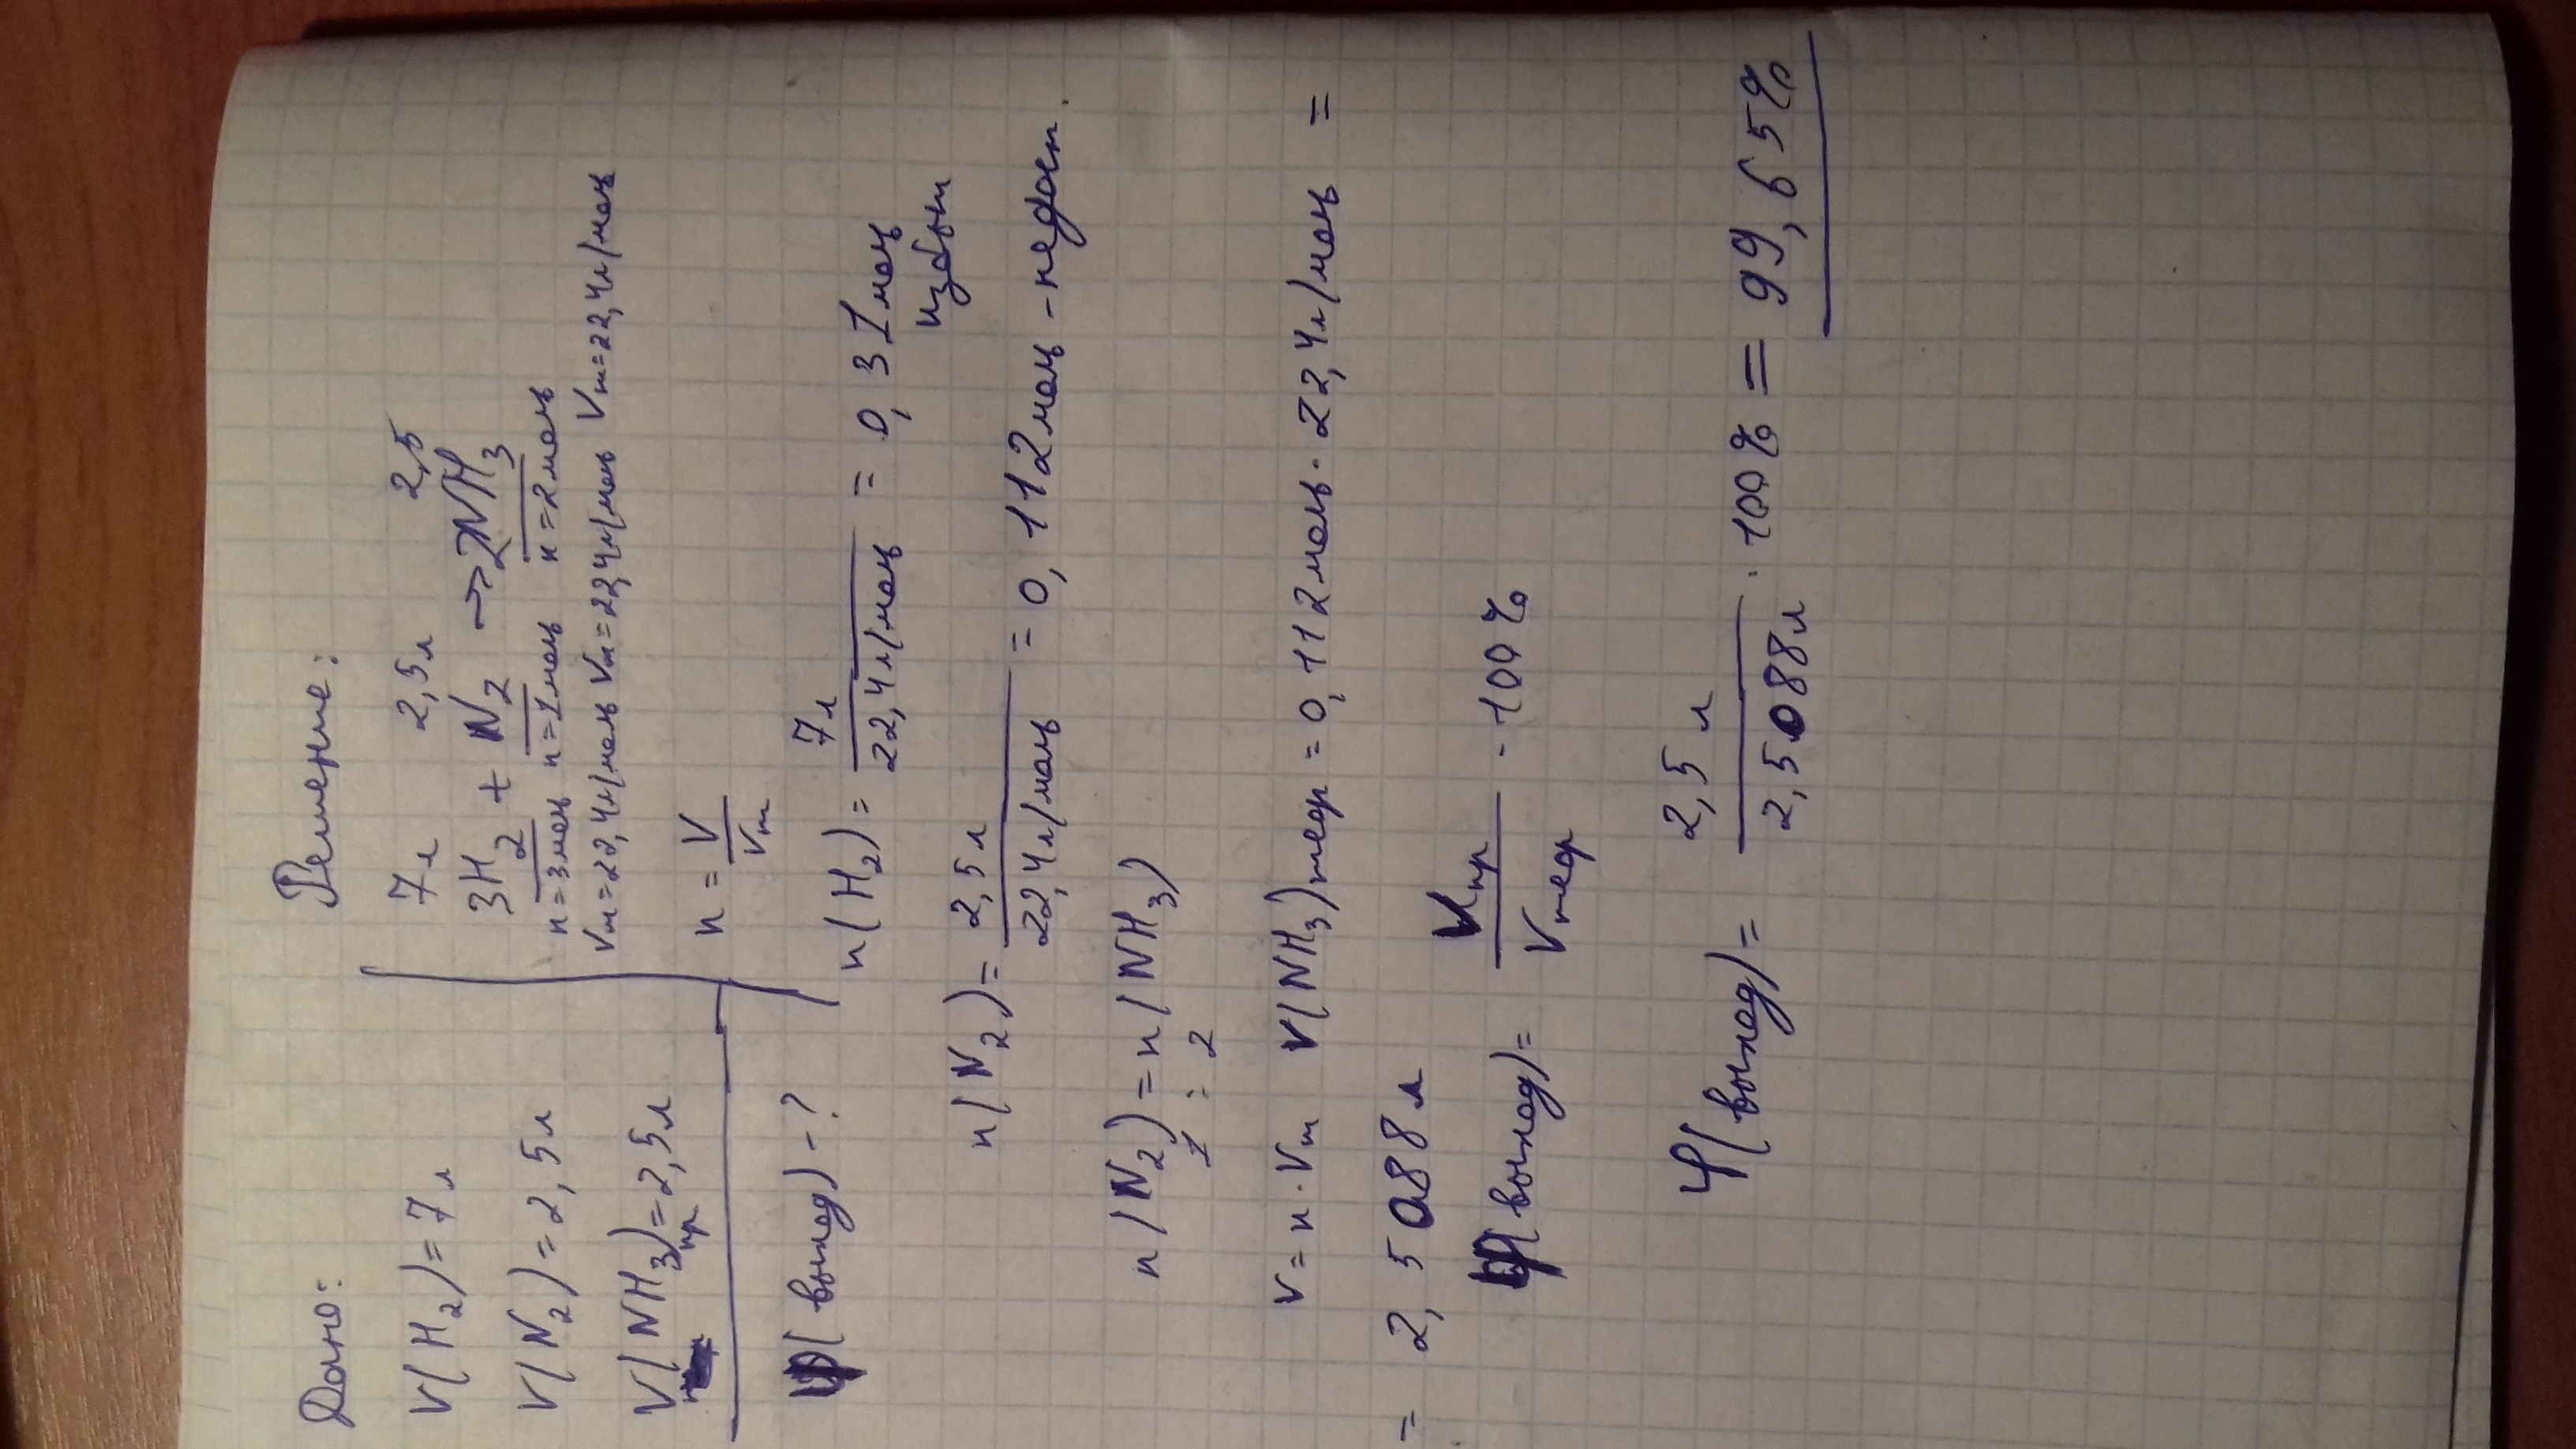 Дано:
V(H2)=7л
V(N2)=2,5л
V(NH3)пр=2,5л
φ(выход)-?
Решение:
7л 2,5л 2,5
3H2 + N2 → 2NH3
n=3моль n=1моль n=2моль
Vm=22,4л/моль Vm=22,4л/моль Vm=22,4л/моль
n = V/Vm
n(H2) = 7л/22,4л/моль = 0,31моль
избыт
n(N2) = 2,5л/22,4л/моль = 0,112моль - недост.
n(N2) = n(NH3)
1 : 2
V = n · Vm V(NH3)теор = 0,112моль · 22,4л/моль =
= 2,5088л
φ(выход) = Vпр/Vтеор · 100%
φ(выход) = 2,5л/2,5088л · 100% = 99,65%